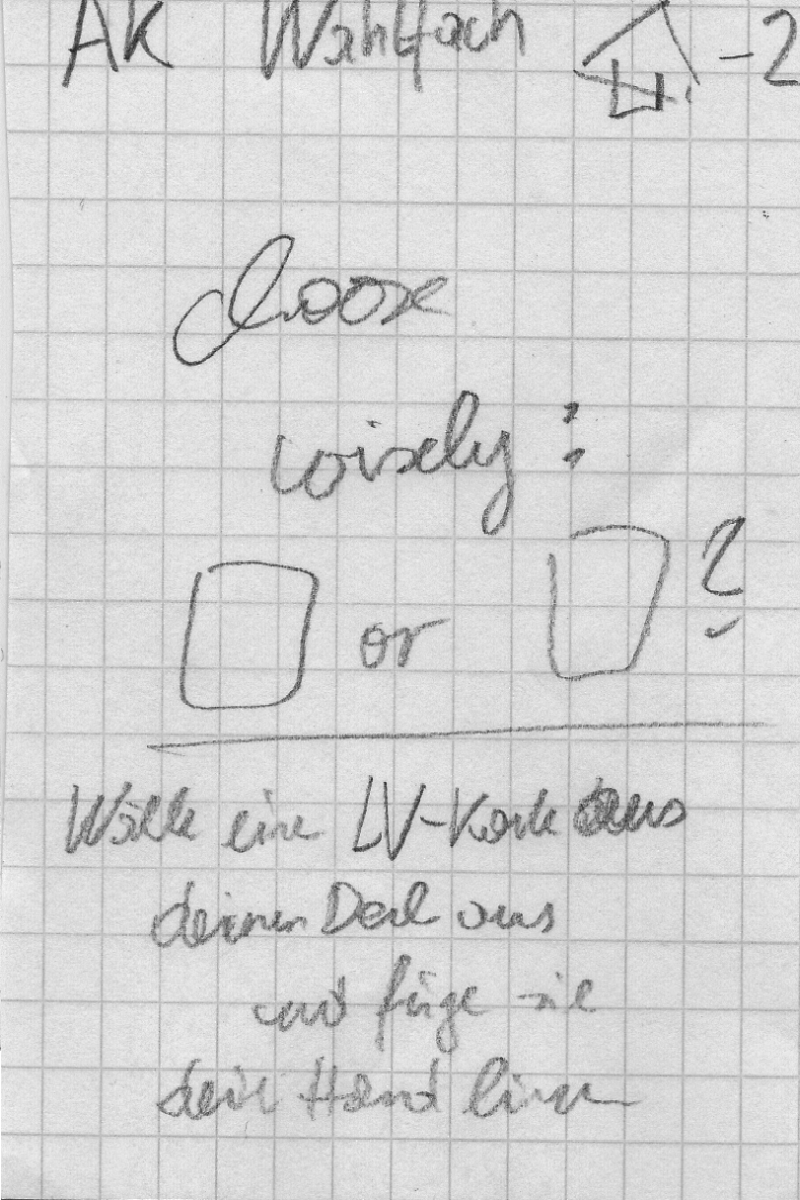 AK Wahlfach -2
choose
wisely:
or ?
Wähle eine LV-Karte aus
deinem Deck aus
und füge sie
dein Hand hinzu